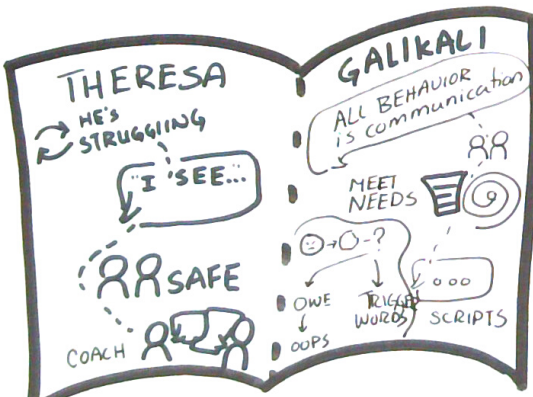 THERESA
HE'S
STRUGGLING
"I SEE...
SAFE
COACH
GALIKALI
ALL BEHAVIOR
is communication
MEET
NEEDS
?
OWE
OOPS
TRIGGER
WORDS
...
SCRIPTS